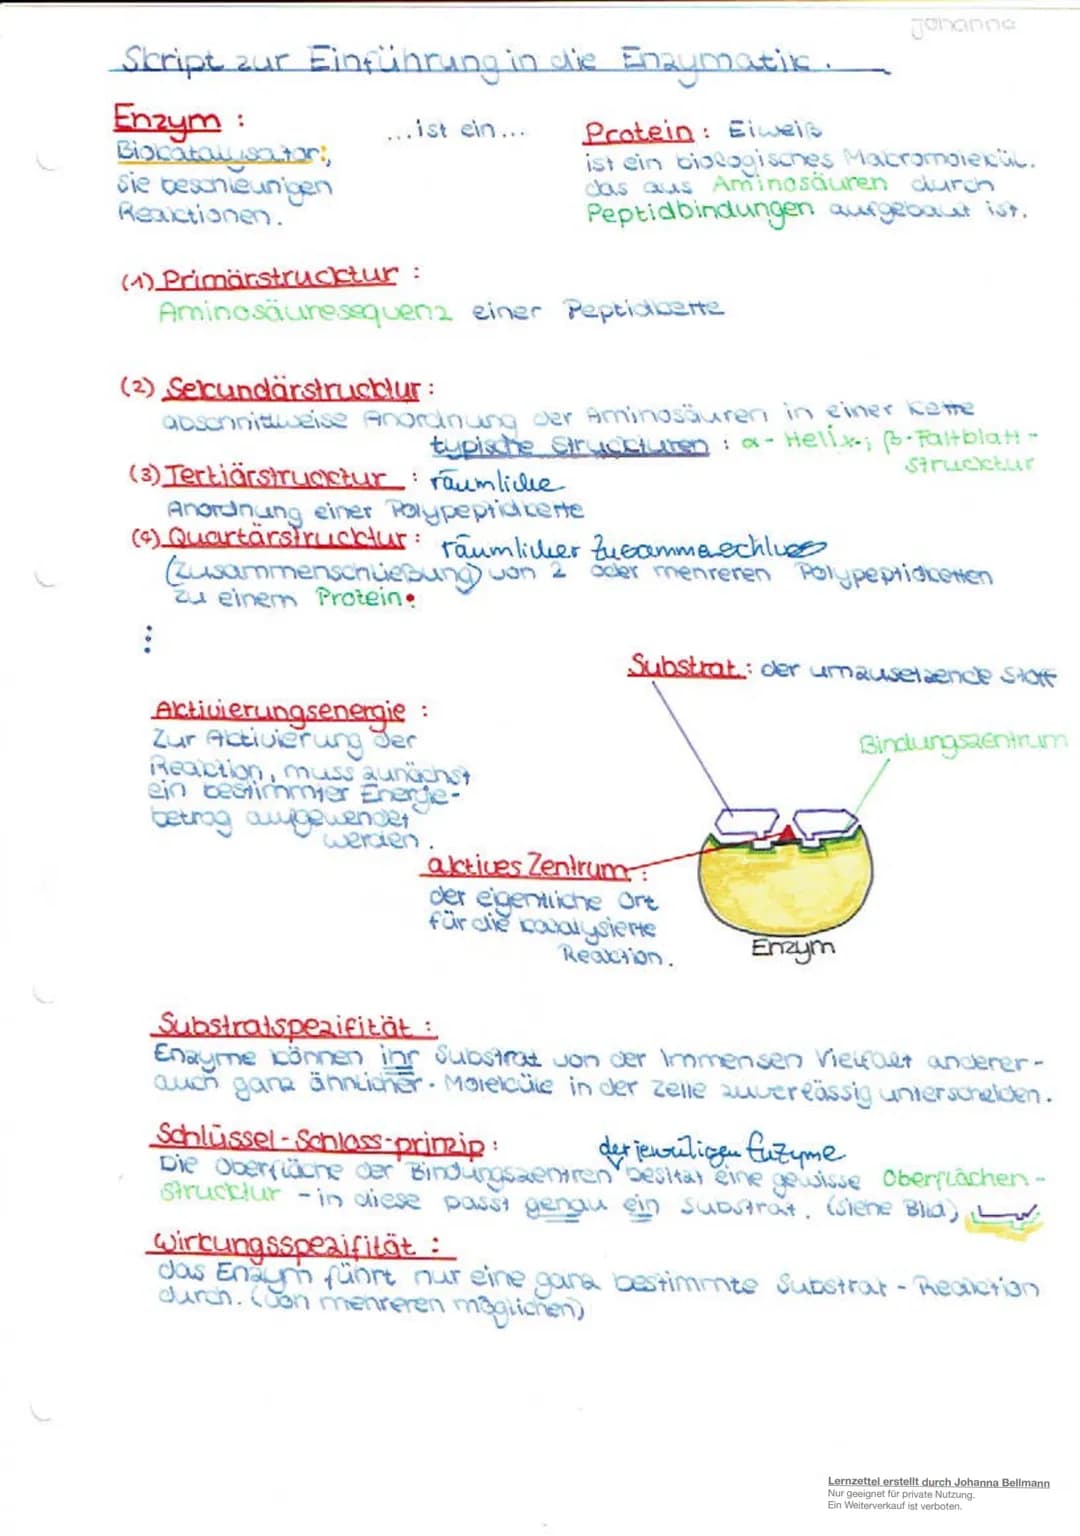 Johanna
Skript zur Einführung in die Enzymatik.
Enzym :
Biokatalysator;
Sie beschleunigen
Reaktionen.
...ist ein...
Protein : Eiweiß
ist ein biologisches Makromolekül.
das aus Aminosäuren durch
Peptidbindungen aufgebaut ist.
(1) Primärstrucktur :
Aminosäuresequenz einer Peptidkette
(2) Sekundärstrucktur :
abschnittweise Anordnung der Aminosäuren in einer Kette
typische Struckturen : α - Helix ; β - Faltblatt -
Strucktur
(3) Tertiärstrucktur : räumliche
Anordnung einer Polypeptidkette
(4) Quartärstrucktur : räumlicher Zusammenschluss
(Zusammenschließung) von 2 oder mehreren Polypeptidketten
zu einem Protein.
Substrat : der umzusetzende Stoff
Aktivierungsenergie :
Zur Aktivierung der
Reaktion, muss zunächst
ein bestimmter Energie-
betrag aufgewendet
werden.
Bindungszentrum
aktives Zentrum :
der eigentliche Ort
für die katalysierte
Reaktion.
Enzym
Substratspezifität :
Enzyme können ihr Substrat von der immensen Vielfalt anderer -
auch ganz ähnlicher - Moleküle in der Zelle zuverlässig unterscheiden.
Schlüssel - Schloss - prinzip :
der jeweiligen Enzyme
Die Oberfläche der Bindungszentren besitzt eine gewisse Oberflächen -
Strucktur - in diese passt genau ein Substrat. (siehe Bild)
Wirkungsspezifität :
das Enzym führt nur eine ganz bestimmte Substrat - Reaktion
durch. (von mehreren möglichen)
Lernzettel erstellt durch Johanna Bellmann
Nur geeignet für private Nutzung.
Ein Weiterverkauf ist verboten.